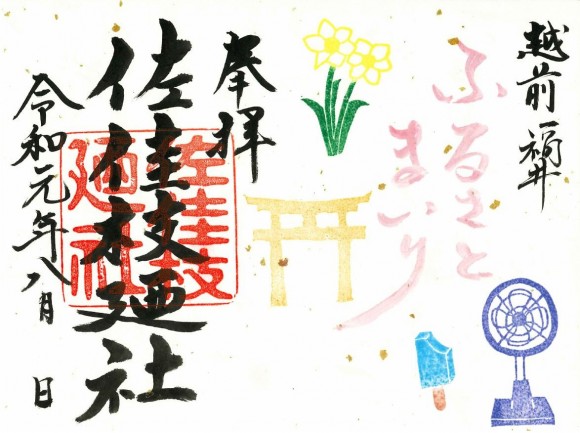 越前一福井
ふるさと
まいり
奉拝
佐佳枝廼社
令和元年八月 日
佐佳枝
廼社